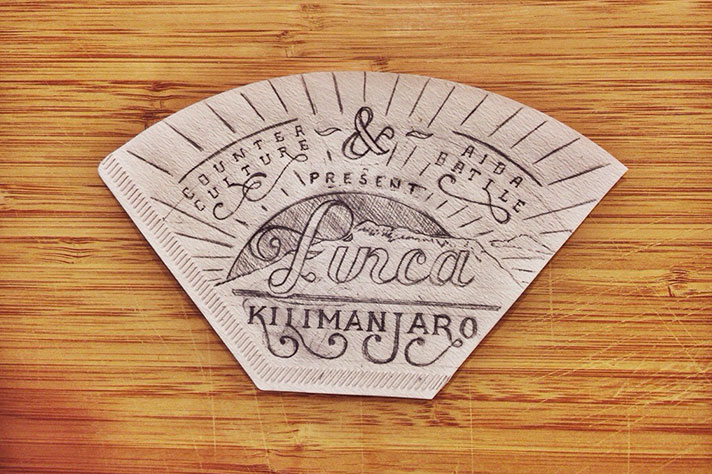 COUNTER
CULTURE
&
AIDA
BATTLE
PRESENT
Finca
KILIMANJARO